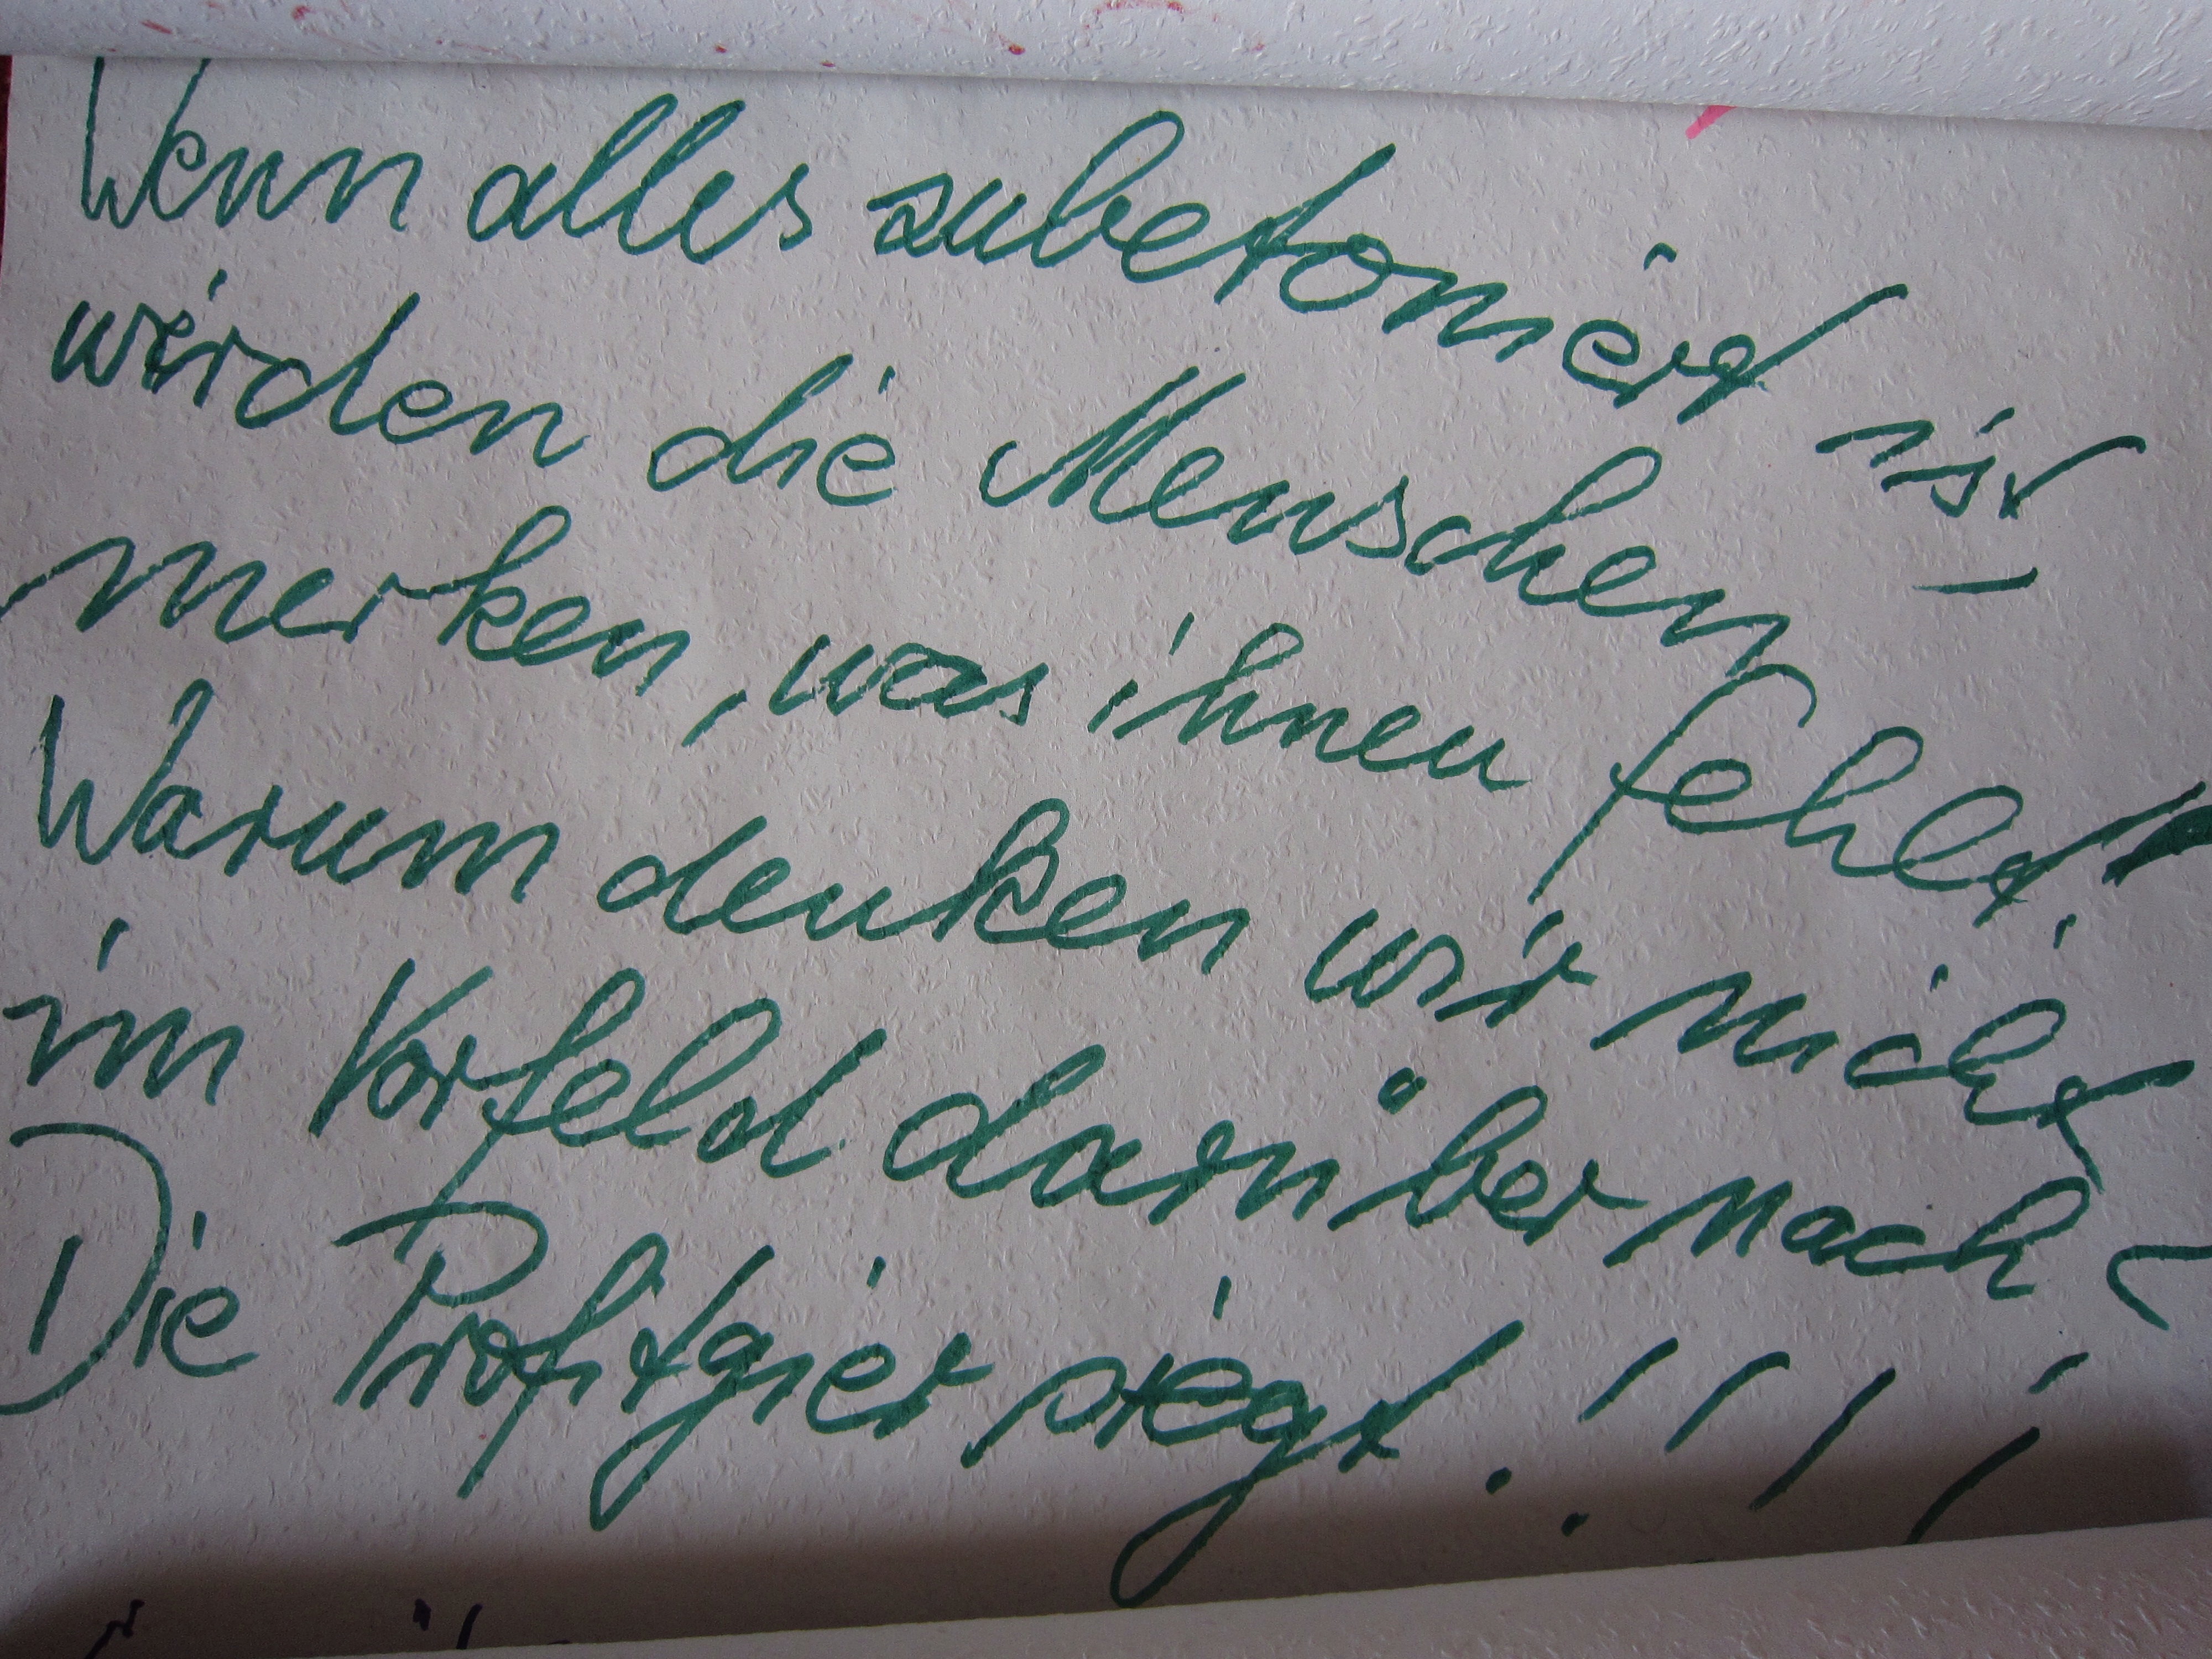 Wenn alles zubetoniert ist –
werden die Menschen
merken, was ihnen fehlt!
Warum denken wir nicht
im Vorfeld darüber nach?
Die Profitgier siegt!!!!